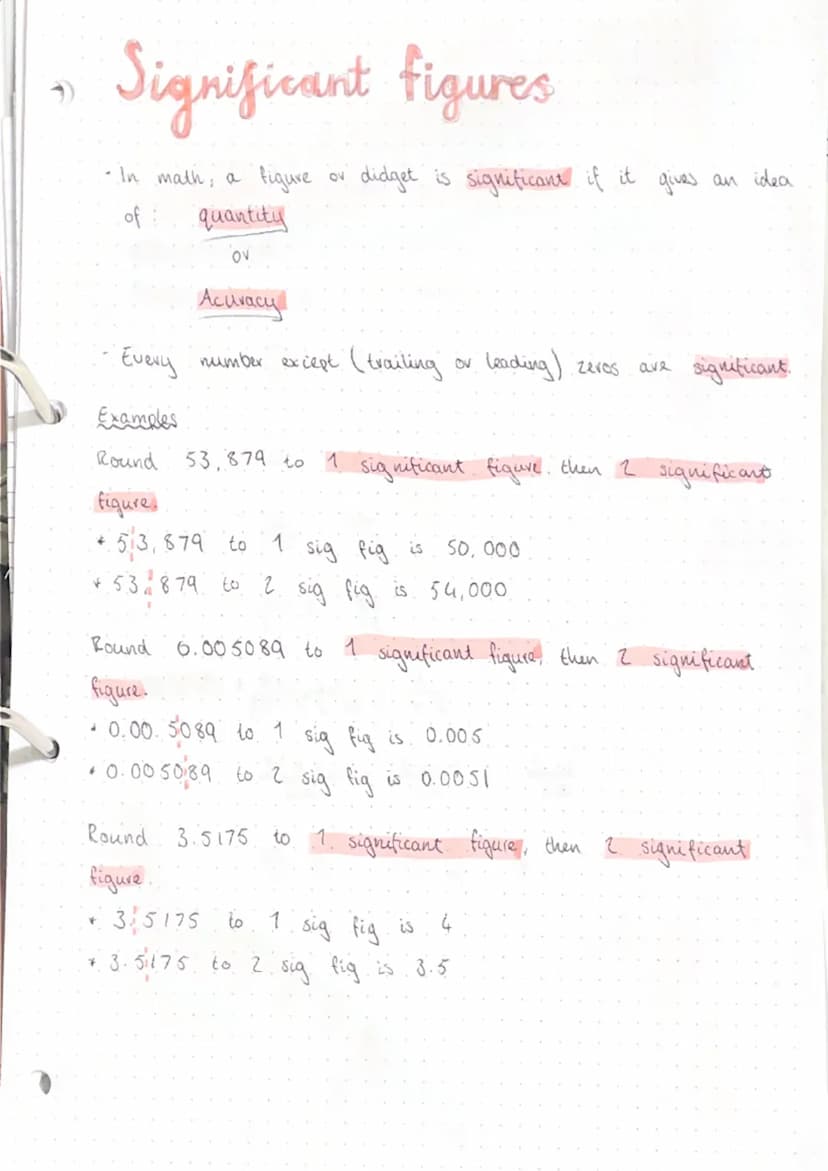 Significant figures
· In math, a figure or didget is significant if it gives an idea
of : quantity
or
Acuracy
· Every number except (trailing or leading) zeros are significant.
Examples
Round 53,879 to 1 significant figure, then 2 significant
figure.
* 53,879 to 1 sig fig is 50,000
* 53,879 to 2 sig fig is 54,000
Round 0.005089 to 1 significant figure, then 2 significant
figure.
* 0.00.5089 to 1 sig fig is 0.005
* 0.005089 to 2 sig fig is 0.0051
Round 3.5175 to 1 significant figure, then 2 significant
figure.
* 3.5175 to 1 sig fig is 4
* 3.5175 to 2 sig fig is 3.5